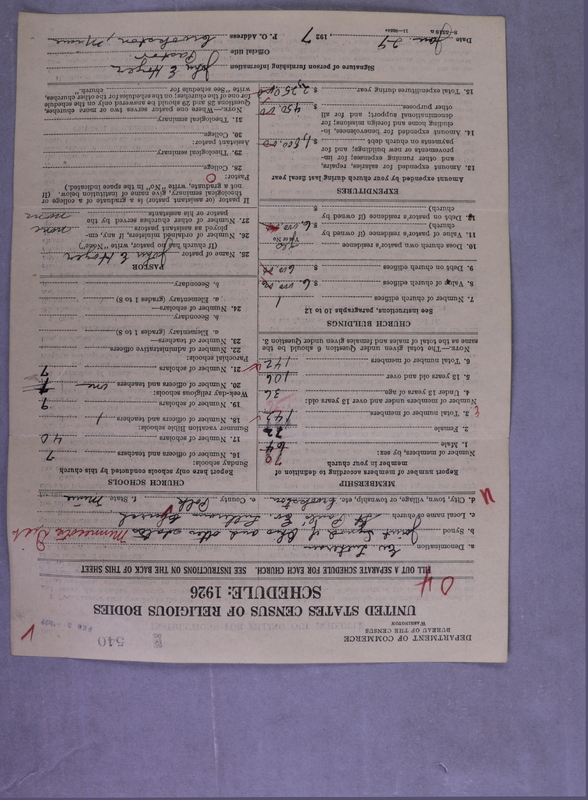 DEPARTMENT OF COMMERCE
BUREAU OF THE CENSUS
WASHINGTON
540
FEB 3 1927
UNITED STATES CENSUS OF RELIGIOUS BODIES
SCHEDULE: 1926
04
FILL OUT A SEPARATE SCHEDULE FOR EACH CHURCH. SEE INSTRUCTIONS ON THE BACK OF THIS SHEET
a. Denomination Ev. Lutheran
b. Synod Joint Synod of Ohio and other states Minnesota Dist
c. Local name of church St. Paul's Ev. Lutheran Church
d. City, town, village, or township, etc. Crookston e. County Polk f. State Minn
MEMBERSHIP
Report number of members according to definition of member in your church
Number of members, by sex:
1. Male 70
2. Female 72
3. Total number of members 142
Number of members under and over 13 years old:
4. Under 13 years of age 36
5. 13 years old and over 106
6. Total number of members 142
NOTE.—The total given under Question 6 should be the same as the total of males and females given under Question 3.
CHURCH BUILDINGS
See instructions, paragraphs 10 to 12
7. Number of church edifices 1
8. Value of church edifices $
9. Debt on church edifices $
10. Does church own pastor's residence
(Yes or No)
11. Value of pastor's residence (if owned by church) $
12. Debt on pastor's residence (if owned by church) $
EXPENDITURES
Amount expended by your church during last fiscal year
13. Amount expended for salaries, repairs, and other running expenses; improvements or new buildings; and for payments on church debt $ 1,800.00
14. Amount expended for benevolences, including home and foreign missions; for denominational support; and for all other purposes $ 450.00
15. Total expenditures during year $ 2,250.00
CHURCH SCHOOLS
Report here only schools conducted by this church
Sunday schools:
16. Number of officers and teachers 7
17. Number of scholars 40
Summer vacation Bible schools:
18. Number of officers and teachers 1
19. Number of scholars
Week-day religious schools:
20. Number of officers and teachers
21. Number of scholars 7
Parochial schools:
22. Number of administrative officers
23. Number of teachers—
a. Elementary (grades 1 to 8)
b. Secondary
24. Number of scholars—
a. Elementary (grades 1 to 8)
b. Secondary
PASTOR
25. Name of pastor John E Hoyer
(If church has no pastor, write "None")
26. Number of ordained ministers, if any, employed as assistant pastors none
27. Number of other churches served by the pastor or his assistants none
If pastor (or assistant pastor) is a graduate of a college or theological seminary, give name of institution below. (If not a graduate, write "No" in the space indicated.)
Pastor: 0
28. College
29. Theological seminary
Assistant pastor:
30. College
31. Theological seminary
NOTE.—Where one pastor serves two or more churches, Questions 25 and 29 should be answered only on the schedule for one of the churches; on the schedules for the other churches, write "See schedule for church."
Signature of person furnishing information John E Hoyer
Official title Pastor
P. O. Address Crookston, Minn
Date Jan 29, 1927